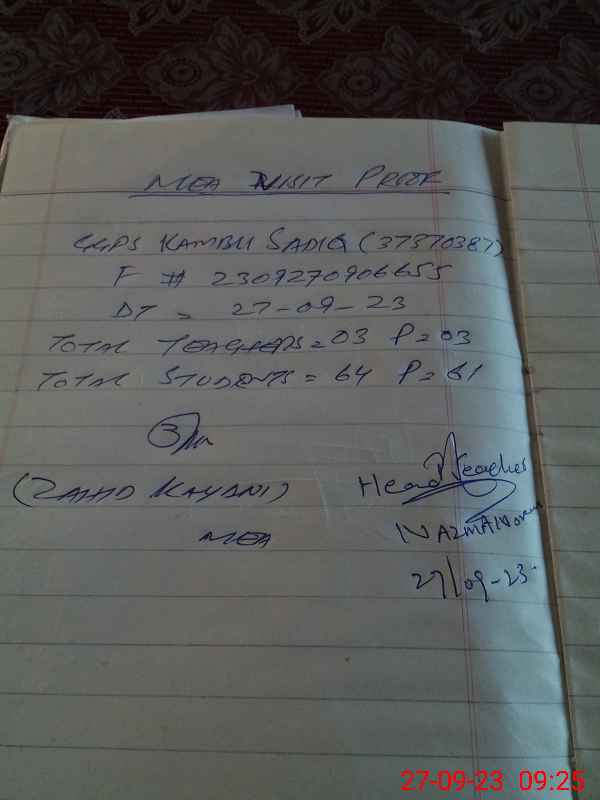 MEA VISIT PROOF
GGPS KAMBLI SADIQ (37370387)
F # 2309270906655
DT = 27-09-23
TOTAL TEACHERS = 03 P = 03
TOTAL STUDENTS = 64 P = 61
(ZAHID KAYANI)
MEA
Head Teacher
NAZMA
27/09-23
27-09-23 09:25